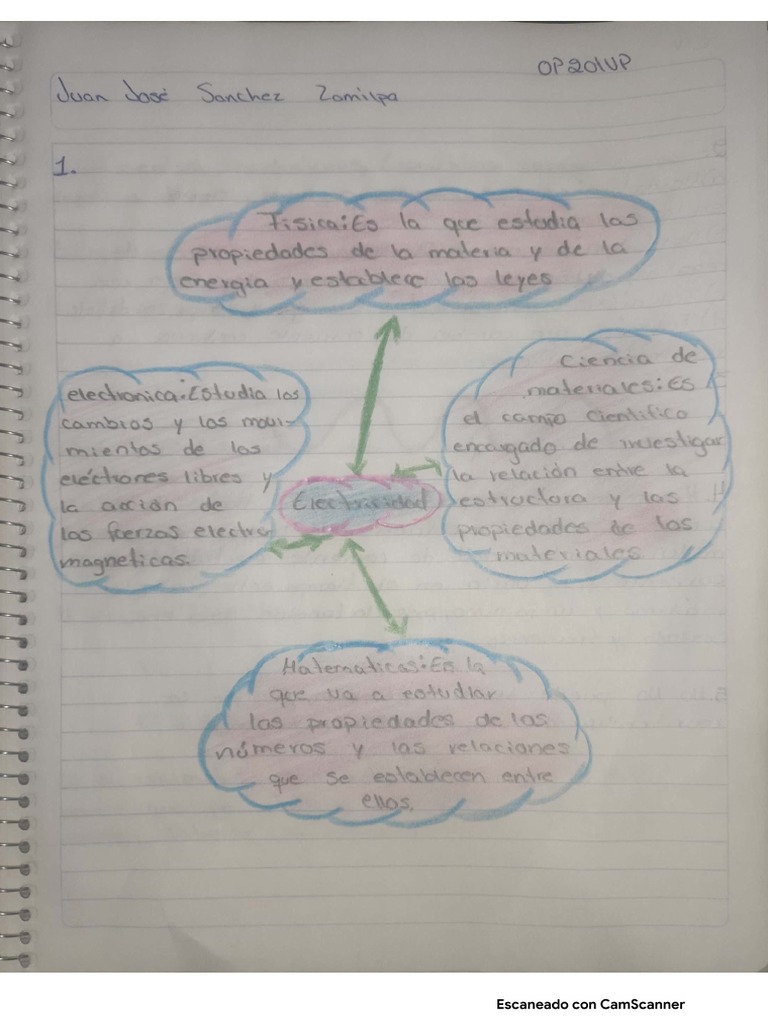 OP201UP
Juan José Sanchez Zamilpa
1.
Fisica:Es la que estudia las
propiedades de la materia y de la
energia y establece las leyes
Ciencia de
materiales:Es
el campo cientifico
encargado de investigar
la relación entre la
estructura y las
propiedades de los
materiales
electronica:Estudia los
cambios y los movi-
mientos de los
eléctrones libres y
la acción de
las fuerzas electro
magneticas.
Electricidad
Matematicas:Es la
que va a estudiar
las propiedades de los
números y las relaciones
que se establecen entre
ellos.
Escaneado con CamScanner